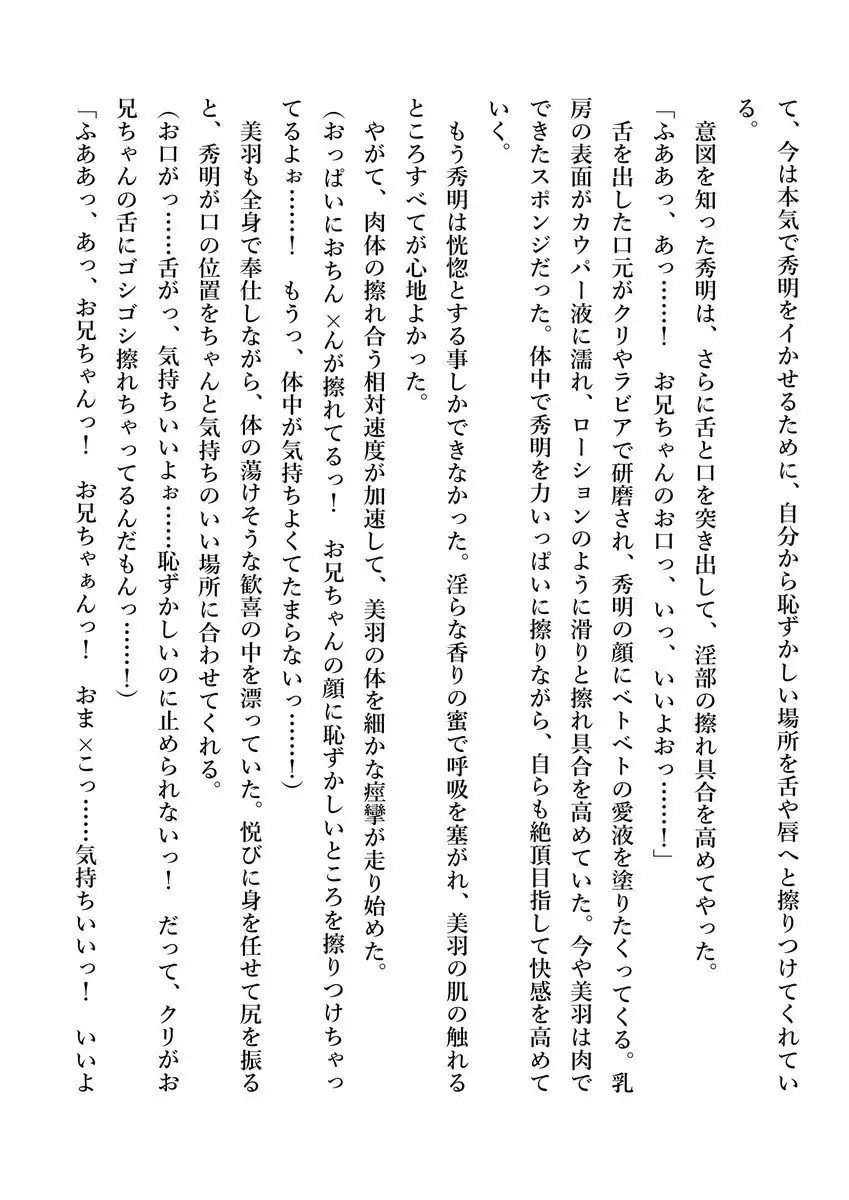 て、今は本気で秀明をイかせるために、自分から恥ずかしい場所を舌や唇へと擦りつけてくれてい
る。
意図を知った秀明は、さらに舌と口を突き出して、淫部の擦れ具合を高めてやった。
「ふああっ、あっ……！　お兄ちゃんのお口っ、いっ、いいよおっ……！」
舌を出した口元がクリやラビアで研磨され、秀明の顔にベトベトの愛液を塗りたくってくる。乳
房の表面がカウパー液に濡れ、ローションのように滑りと擦れ具合を高めていた。今や美羽は肉で
できたスポンジだった。体中で秀明を力いっぱいに擦りながら、自らも絶頂目指して快感を高めて
いく。
もう秀明は恍惚とする事しかできなかった。淫らな香りの蜜で呼吸を塞がれ、美羽の肌の触れる
ところすべてが心地よかった。
やがて、肉体の擦れ合う相対速度が加速して、美羽の体を細かな痙攣が走り始めた。
（おっぱいにおちん×んが擦れてるっ！　お兄ちゃんの顔に恥ずかしいところを擦りつけちゃっ
てるよぉ……！　もうっ、体中が気持ちよくてたまらないっ……！）
美羽も全身で奉仕しながら、体の蕩けそうな歓喜の中を漂っていた。悦びに身を任せて尻を振る
と、秀明が口の位置をちゃんと気持ちのいい場所に合わせてくれる。
（お口がっ……舌がっ、気持ちいいよぉ……恥ずかしいのに止められないっ！　だって、クリがお
兄ちゃんの舌にゴシゴシ擦れちゃってるんだもんっ……！）
「ふああっ、あっ、お兄ちゃんっ！　お兄ちゃぁんっ！　おま×こっ……気持ちいいっ！　いいよ